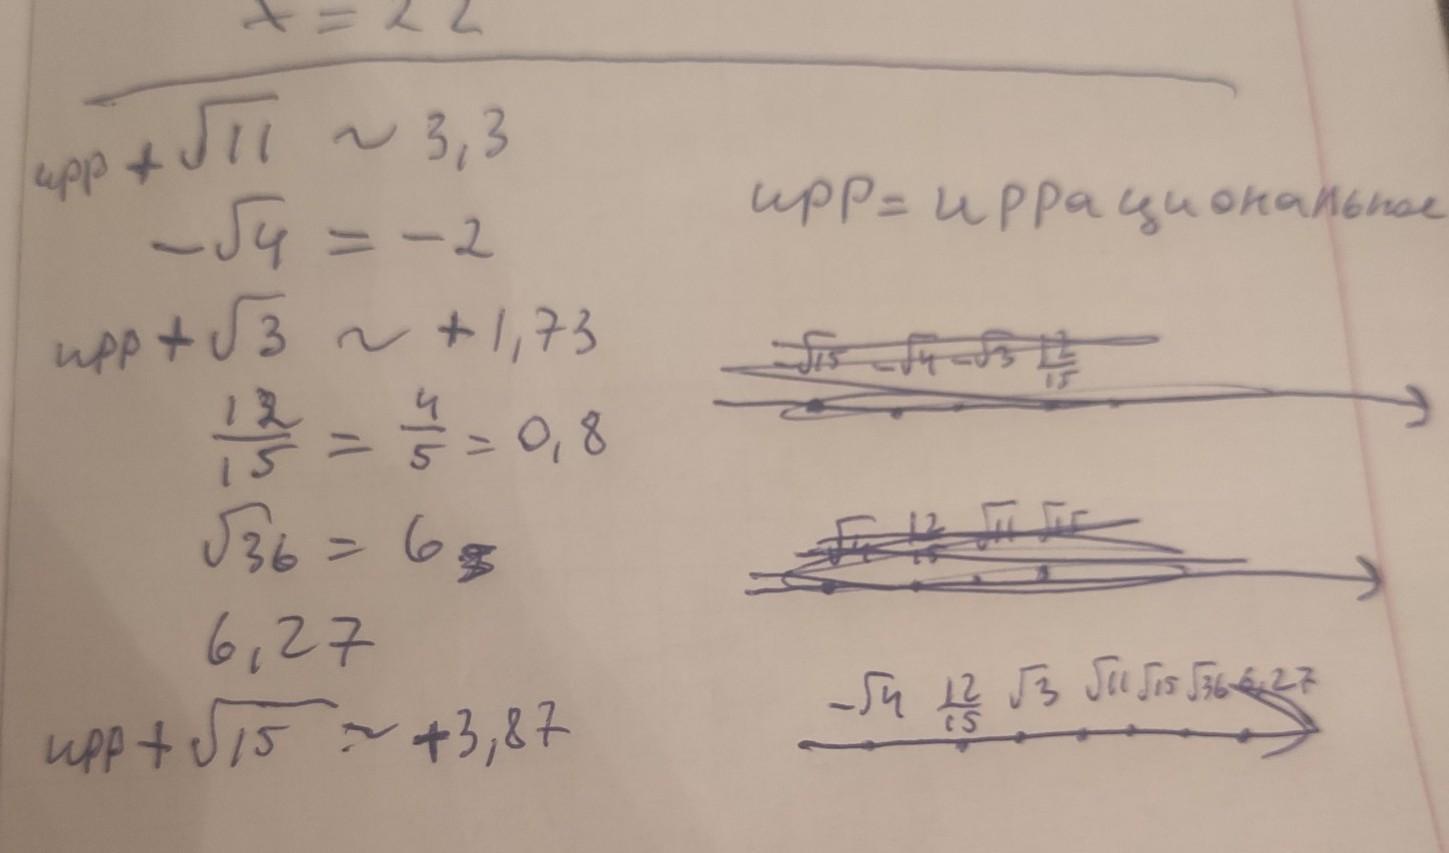 x = 22
ирр + √11 ~ 3,3
-√4 = -2
ирр + √3 ~ +1,73
12/15 = 4/5 = 0,8
√36 = 6
6,27
ирр + √15 ~ +3,87
ирр = иррациональное
-√15 -√4 -√3 12/15
-√4 12/15 √11 √15
-√4 12/15 √3 √11 √15 √36 6,27